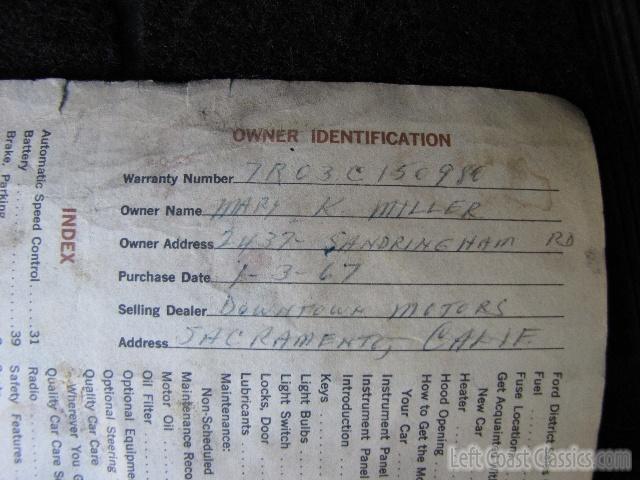 OWNER IDENTIFICATION
Warranty Number 7R03C150980
Owner Name MARY K MILLER
Owner Address 2437 SANDRINGHAM RD
Purchase Date 1-3-67
Selling Dealer DOWNTOWN MOTORS
Address SACRAMENTO, CALIF
INDEX
Automatic Speed Control ......31
Battery ..........39
Brake, Parking
Ford District
Fuel
Fuse Location
Get Acquaint
New Car
Heater
Hood Opening
How to Get the Mo
Your Car
Instrument Panel
Instrument Panel
Introduction
Keys
Light Bulbs
Light Switch
Locks, Door
Lubricants
Maintenance:
Non-Scheduled
Maintenance Reco
Motor Oil
Oil Filter
Optional Equipme
Optional Steering
Quality Car Care
Wherever You G
Quality Car Care S
Radio
Safety Features
Left Coast Classics.com